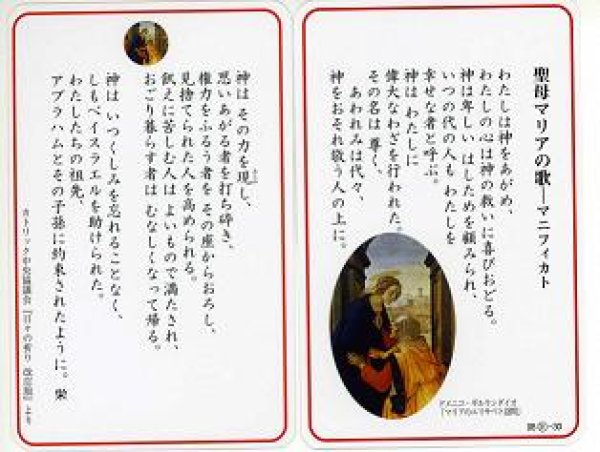 聖母マリアの歌―マニフィカト
わたしは神をあがめ、
わたしの心は神の救いに喜びおどる。
神は卑しい はしためを顧みられ、
いつの代の人も わたしを
幸せな者と呼ぶ。
神は わたしに
偉大なわざを行われた。
その名は尊く、
あわれみは代々、
神をおそれ敬う人の上に。
ドメニコ・ギルランダイオ
「マリアのエリサベト訪問」
神は その力を現し、
思いあがる者を打ち砕き、
権力をふるう者を その座からおろし、
見捨てられた人を高められる。
飢えに苦しむ人は よいもので満たされ、
おごり暮らす者は むなしくなって帰る。
神は いつくしみを忘れることなく、
しもべイスラエルを助けられた。
わたしたちの祖先、
アブラハムとその子孫に約束されたように。 栄
カトリック中央協議会『日々の祈り 改訂版』より